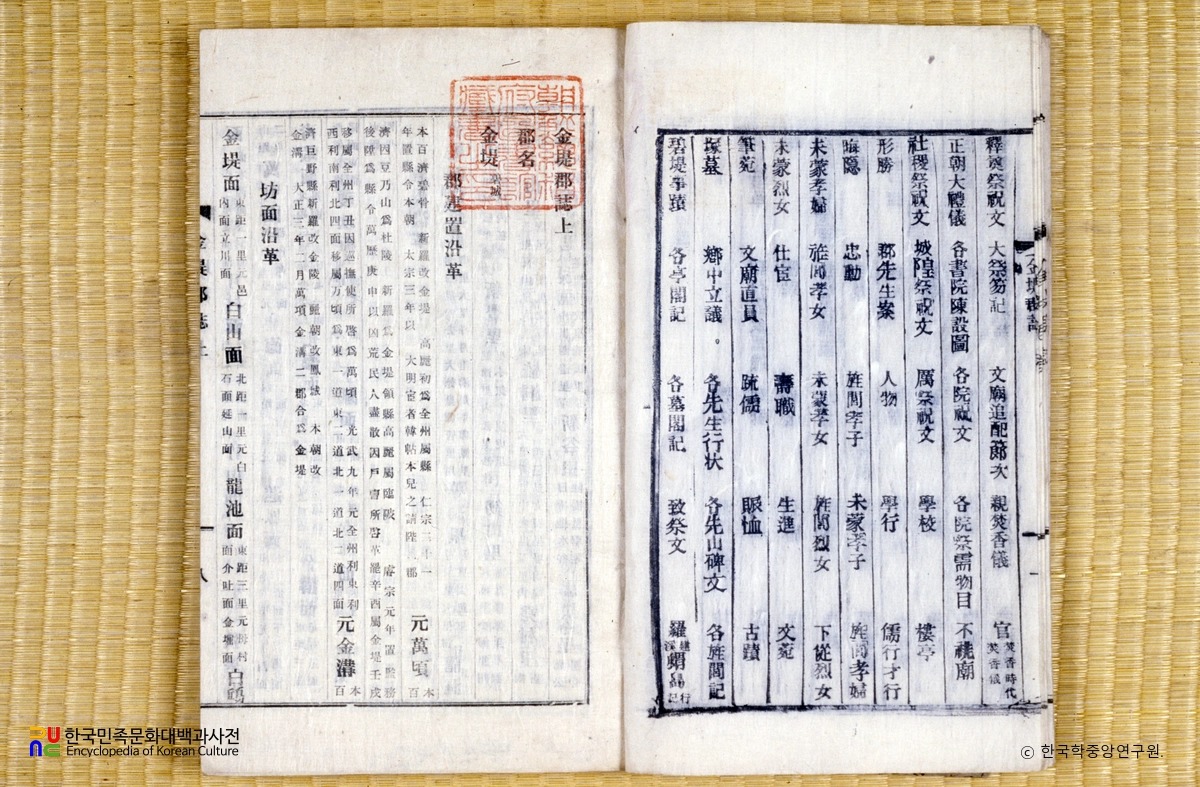 釋奠祭祝文 大祭笏記 文廟追配節次 親焚香儀 官 焚香時代 焚香儀
正朝大禮儀 各書院陳設圖 各院祝文 各院祭需物目 不祧廟
社稷祭祝文 城隍祭祝文 厲祭祝文 學校 樓亭
形勝 郡先生案 人物 學行 儒行才行
忠勳 旌閭孝子 未蒙孝子 旌閭孝婦
未蒙孝婦 旌閭孝女 未蒙孝女 旌閭烈女 下從烈女
未蒙烈女 仕宦 壽職 生進 文苑
筆苑 文廟直員 疏儒 賑恤 古蹟
塚墓 鄉中立議 各先生行狀 各先山碑文 各旌閭記
碧堤事蹟 各亭閣記 各墓閣記 致祭文
金堤郡誌上
郡名
金堤
郡建置沿革
本百濟碧骨 新羅改金堤 高麗初為全州屬縣 仁宗二十一
年置縣令本朝 太宗三年以 大明宦者韓帖木兒之請陞 郡
元萬頃 本百
濟豆乃山為杜陵 新羅為金堤領縣高麗屬臨陂 睿宗元年置監務
後陞為縣令萬曆庚申以凶荒民人盡散因戶曹所啓革罷辛酉屬金堤壬戌
移屬全州丁丑因巡撫使所啓為萬頃 光武九年元全州利東利
西利南利北四面移屬万頃為東一道東二道北一道北二道四面
元金溝 本百
濟巨野縣新羅改金陵 麗朝改鳳城 本朝改
金溝 大正三年二月萬頃金溝二郡合為金堤
坊面沿革
金堤面 東距一里元邑內面立川面 白山面 北距一里元白石面延山面 龍池面 東距三里元 村面介吐面金堀面 白鷗
金堤郡誌上
八
한국민족문화대백과사전
Encyclopedia of Korean Culture
ⓒ 한국학중앙연구원.